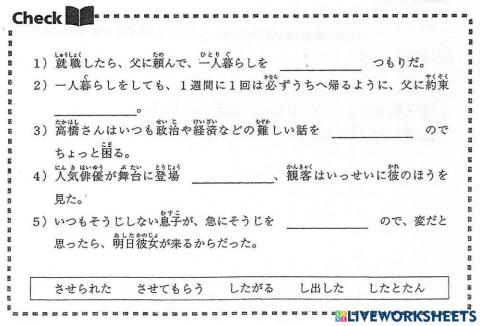 Check
1）就職したら、父に頼んで、一人暮らしを ＿＿＿＿＿ つもりだ。
2）一人暮らしをしても、1週間に1回は必ずうちへ帰るように、父に約束
＿＿＿＿＿。
3）高橋さんはいつも政治や経済などの難しい話を ＿＿＿＿＿ ので
ちょっと困る。
4）人気俳優が舞台に登場 ＿＿＿＿＿、観客はいっせいに彼のほうを
見た。
5）いつもそうじしない息子が、急にそうじを ＿＿＿＿＿ ので、変だと
思ったら、明日彼女が来るからだった。
させられた　させてもらう　したがる　し出した　したとたん
LIVEWORKSHEETS